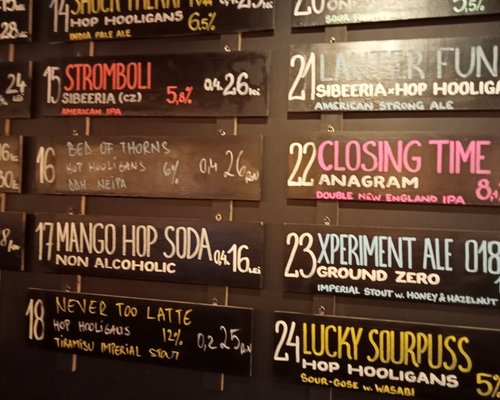 28
14 SHOCK THERAPY
HOP HOOLIGANS 6,5%
INDIA PALE ALE
24
15 STROMBOLI 0,4 26 lei
SIBEERIA (CZ) 5,8%
AMERICAN IPA
16 BED OF THORNS
HOP HOOLIGANS 6% 0,4 26
DDH NEIPA
17 MANGO HOP SODA 0,4 16 lei
NON ALCOHOLIC
18 NEVER TOO LATTE
HOP HOOLIGANS 12% 0,2 25
TIRAMISU IMPERIAL STOUT
20
5%
21 LAWYER FUN
SIBEERIA × HOP HOOLIGA
AMERICAN STRONG ALE
22 CLOSING TIME
ANAGRAM 8,
DOUBLE NEW ENGLAND IPA
23 XPERIMENT ALE 018
GROUND ZERO
IMPERIAL STOUT w. HONEY & HAZELNUT
24 LUCKY SOURPUSS
HOP HOOLIGANS 5%
SOUR-GOSE w. WASABI